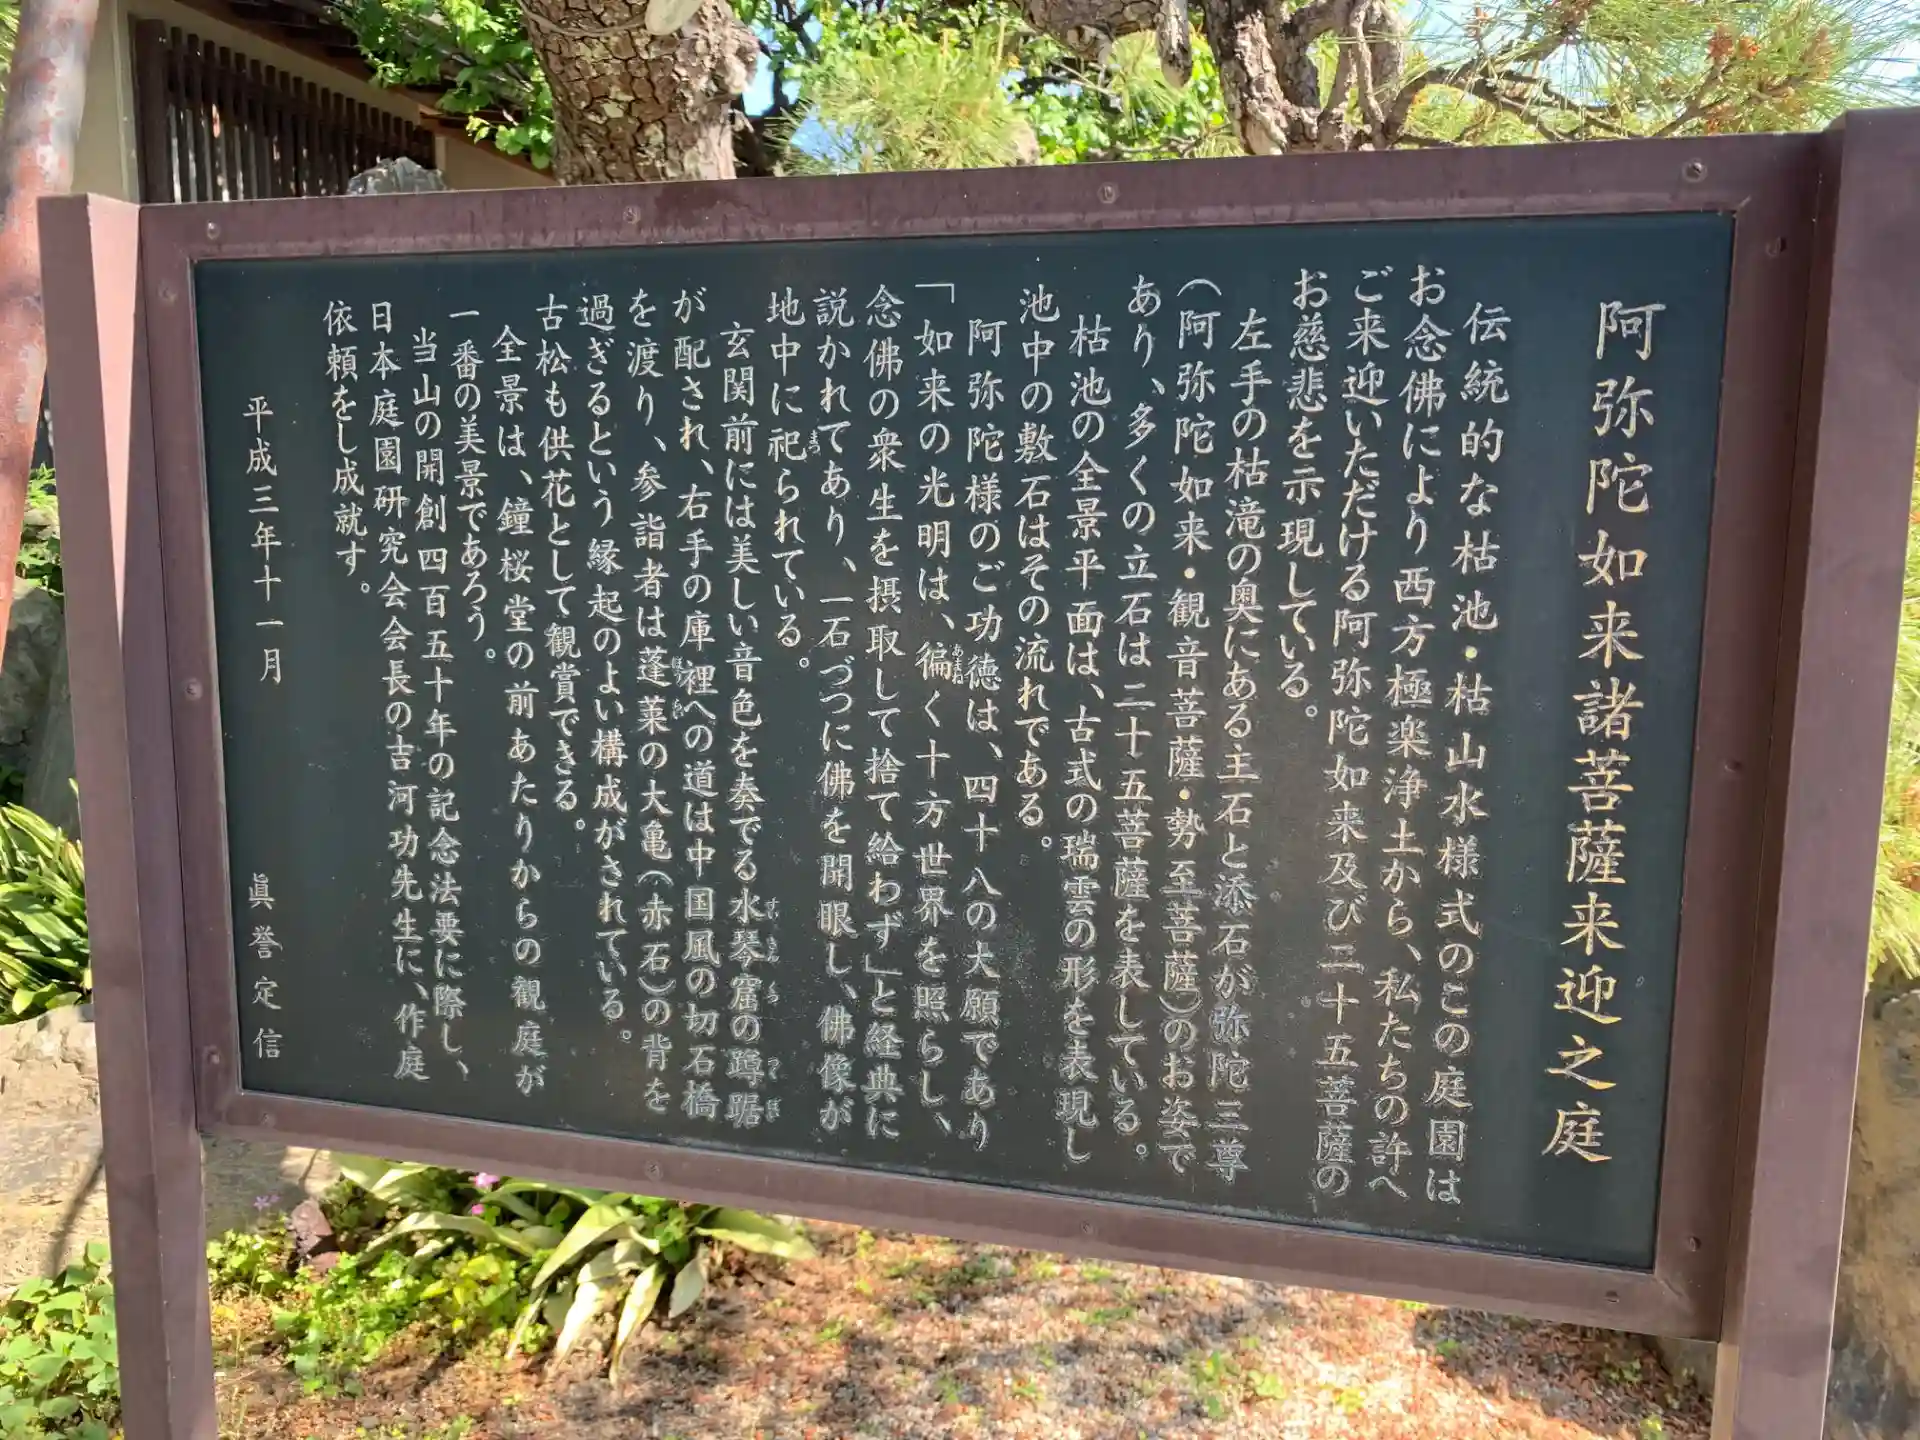 阿弥陀如来諸菩薩来迎之庭
伝統的な枯池・枯山水様式のこの庭園は
お念佛により西方極楽浄土から、私たちの許へ
ご来迎いただける阿弥陀如来及び二十五菩薩の
お慈悲を示現している。
左手の枯滝の奥にある主石と添石が弥陀三尊
(阿弥陀如来・観音菩薩・勢至菩薩)のお姿で
あり、多くの立石は二十五菩薩を表している。
枯池の全景平面は、古式の瑞雲の形を表現し
池中の敷石はその流れである。
阿弥陀様のご功徳は、四十八の大願であり
「如来の光明は、徧く十方世界を照らし、
念佛の衆生を摂取して捨て給わず」と経典に
説かれてあり、一石づつに佛を開眼し、佛像が
地中に祀られている。
玄関前には美しい音色を奏でる水琴窟の蹲踞
が配され、右手の庫裡への道は中国風の切石橋
を渡り、参詣者は蓬莱の大亀(赤石)の背を
過ぎるという縁起のよい構成がされている。
古松も供花として観賞できる。
全景は、鐘桜堂の前あたりからの観庭が
一番の美景であろう。
当山の開創四百五十年の記念法要に際し、
日本庭園研究会会長の吉河功先生に、作庭
依頼をし成就す。
平成三年十一月 眞誉定信